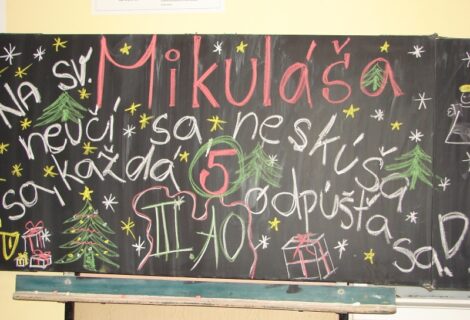 NA SV. Mikuláša
neučí sa, neskúša
sa, každá 5 odpúšťa
sa. :D
III. AO